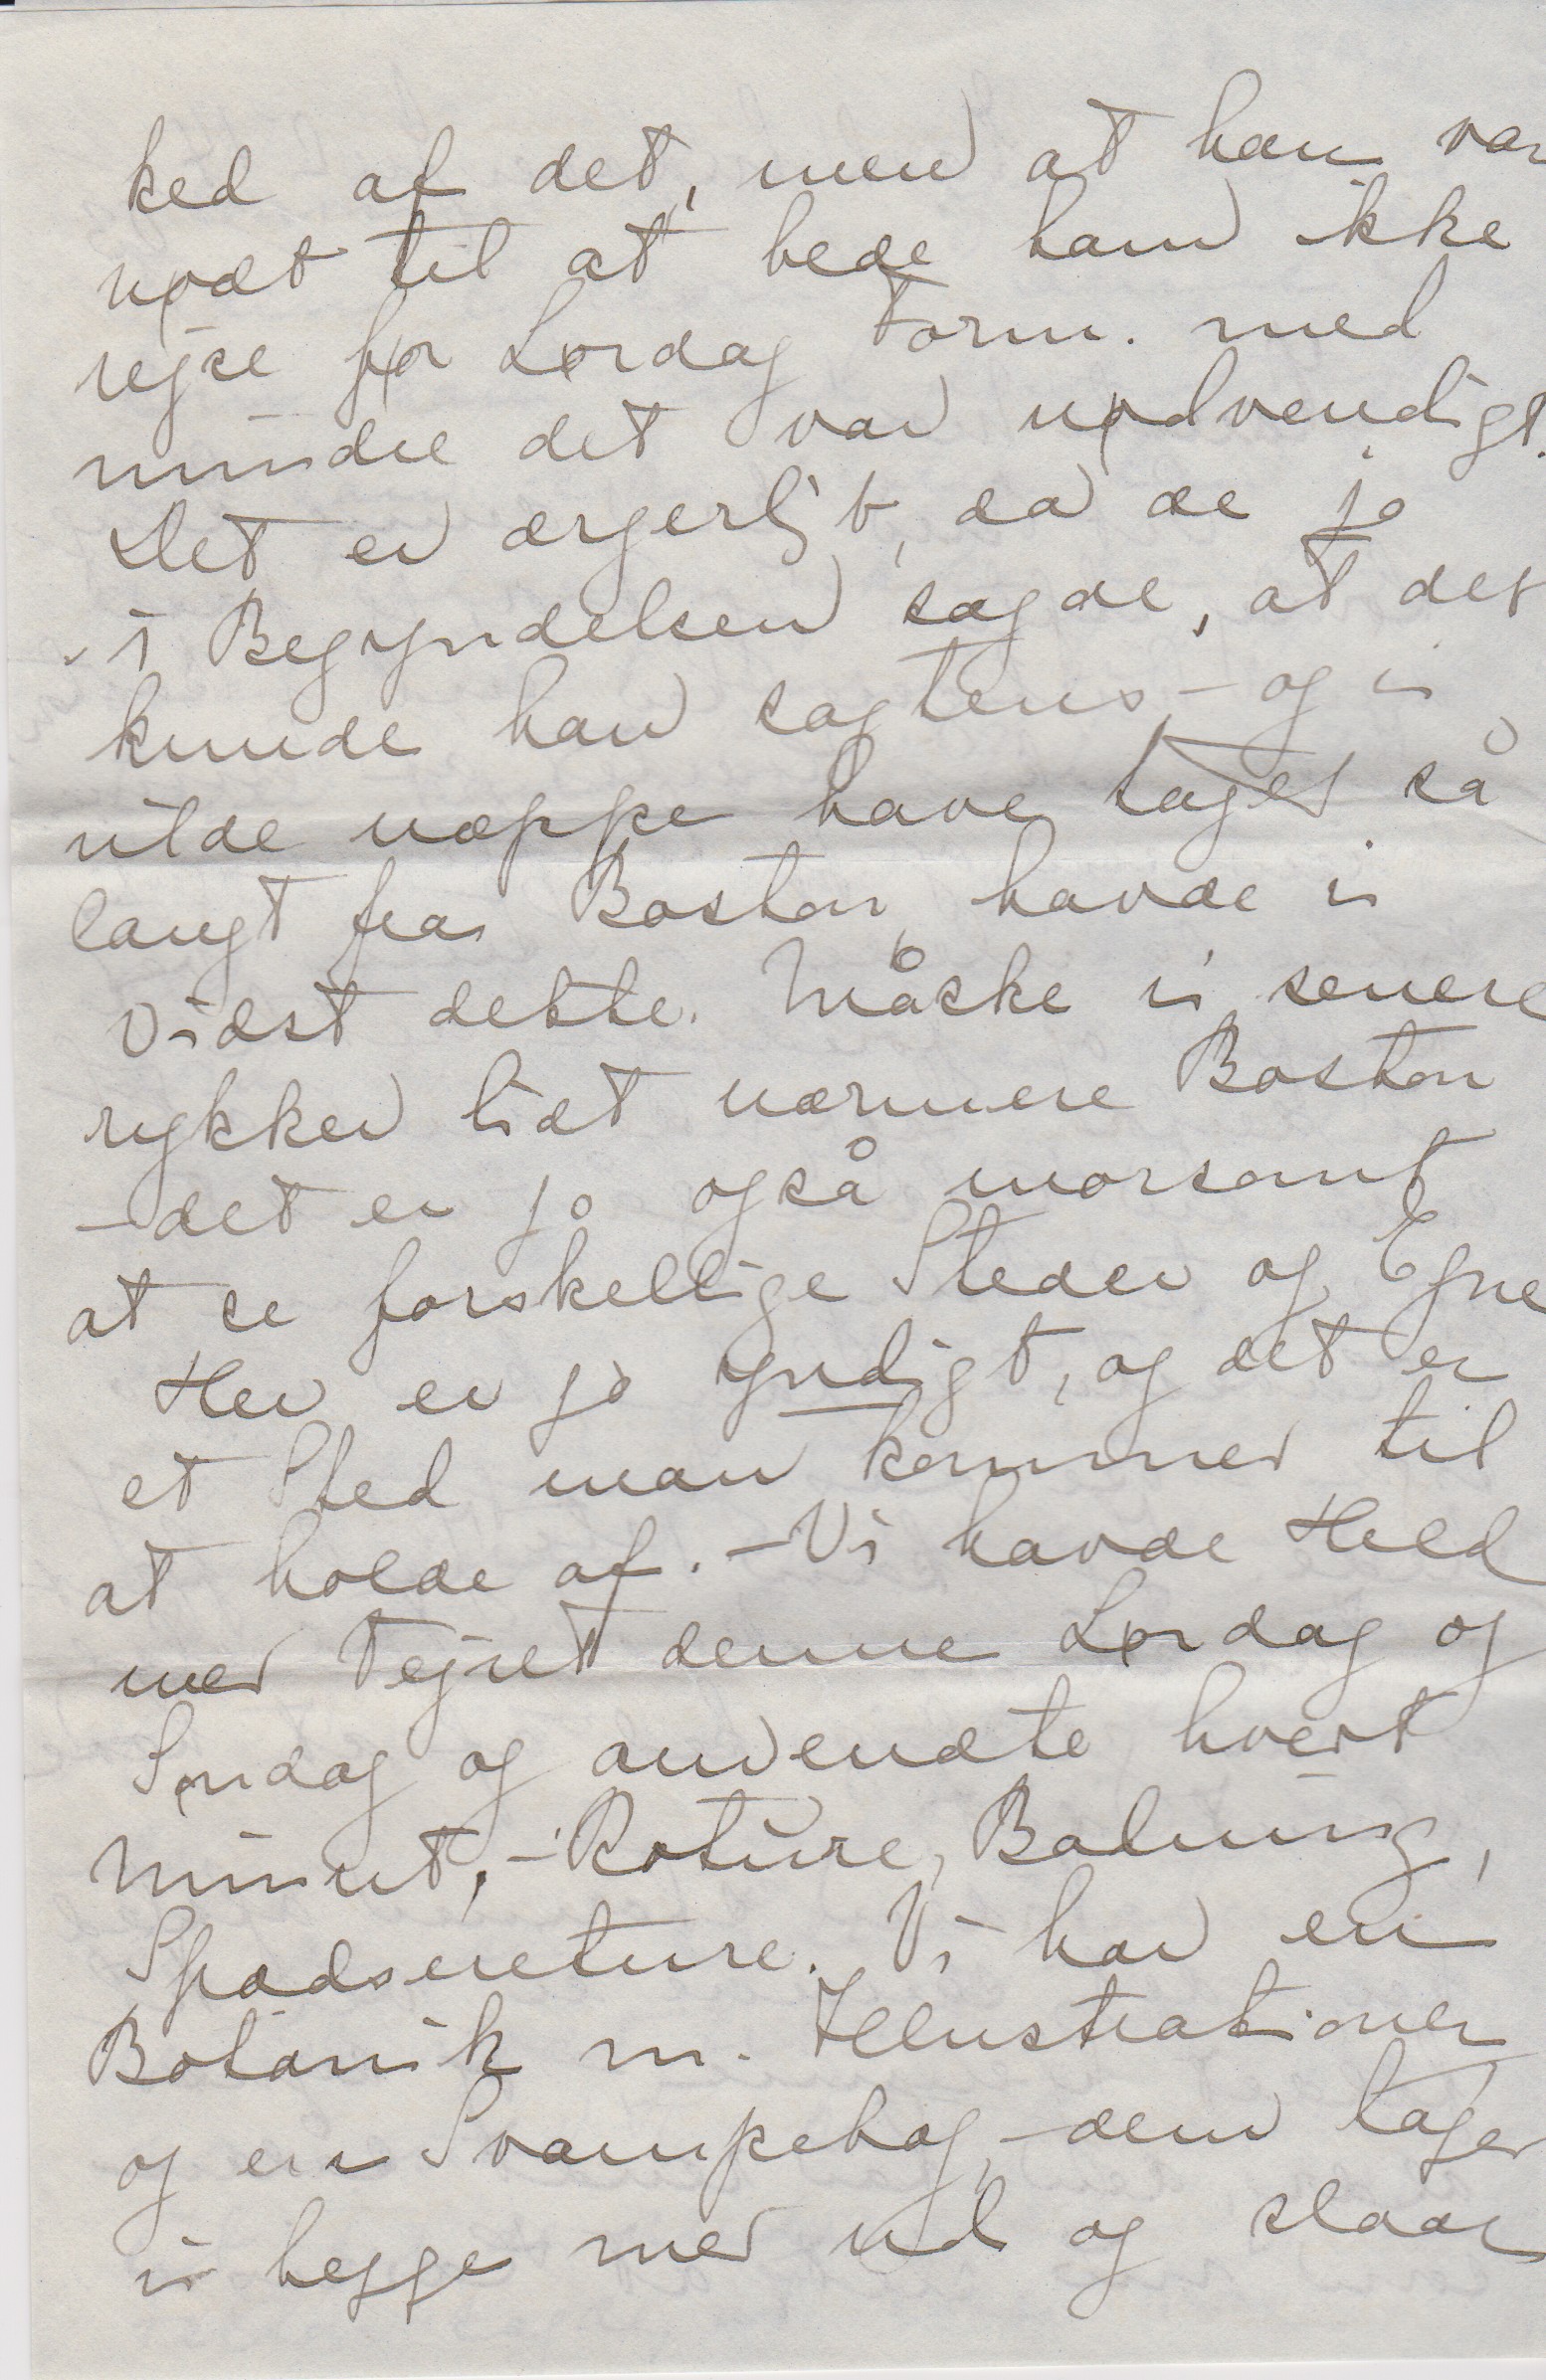 ked af det, men at han var
nødt til at bede ham ikke
rejse før Lørdag Form. med
mindre det var nødvendigt.
Det er ærgerligt, da de jo
i Begyndelsen sagde, at det
kunde han sagtens – og vi
vilde næppe have taget så
langt fra Boston, havde vi
vidst dette. Måske vi senere
rykker lidt nærmere Boston
– det er jo også morsomt
at se forskellige Steder og Egne
Her er jo yndigt, og det er
et Sted man kommer til
at holde af. – Vi havde Held
med Vejret denne Lørdag og
Søndag og anvendte hvert
Minut, – Roture, Badning,
Spadsereture. Vi har en
Botanik m. Illustrationer
og en Svampebog, – dem tager
vi begge med ud og slaar